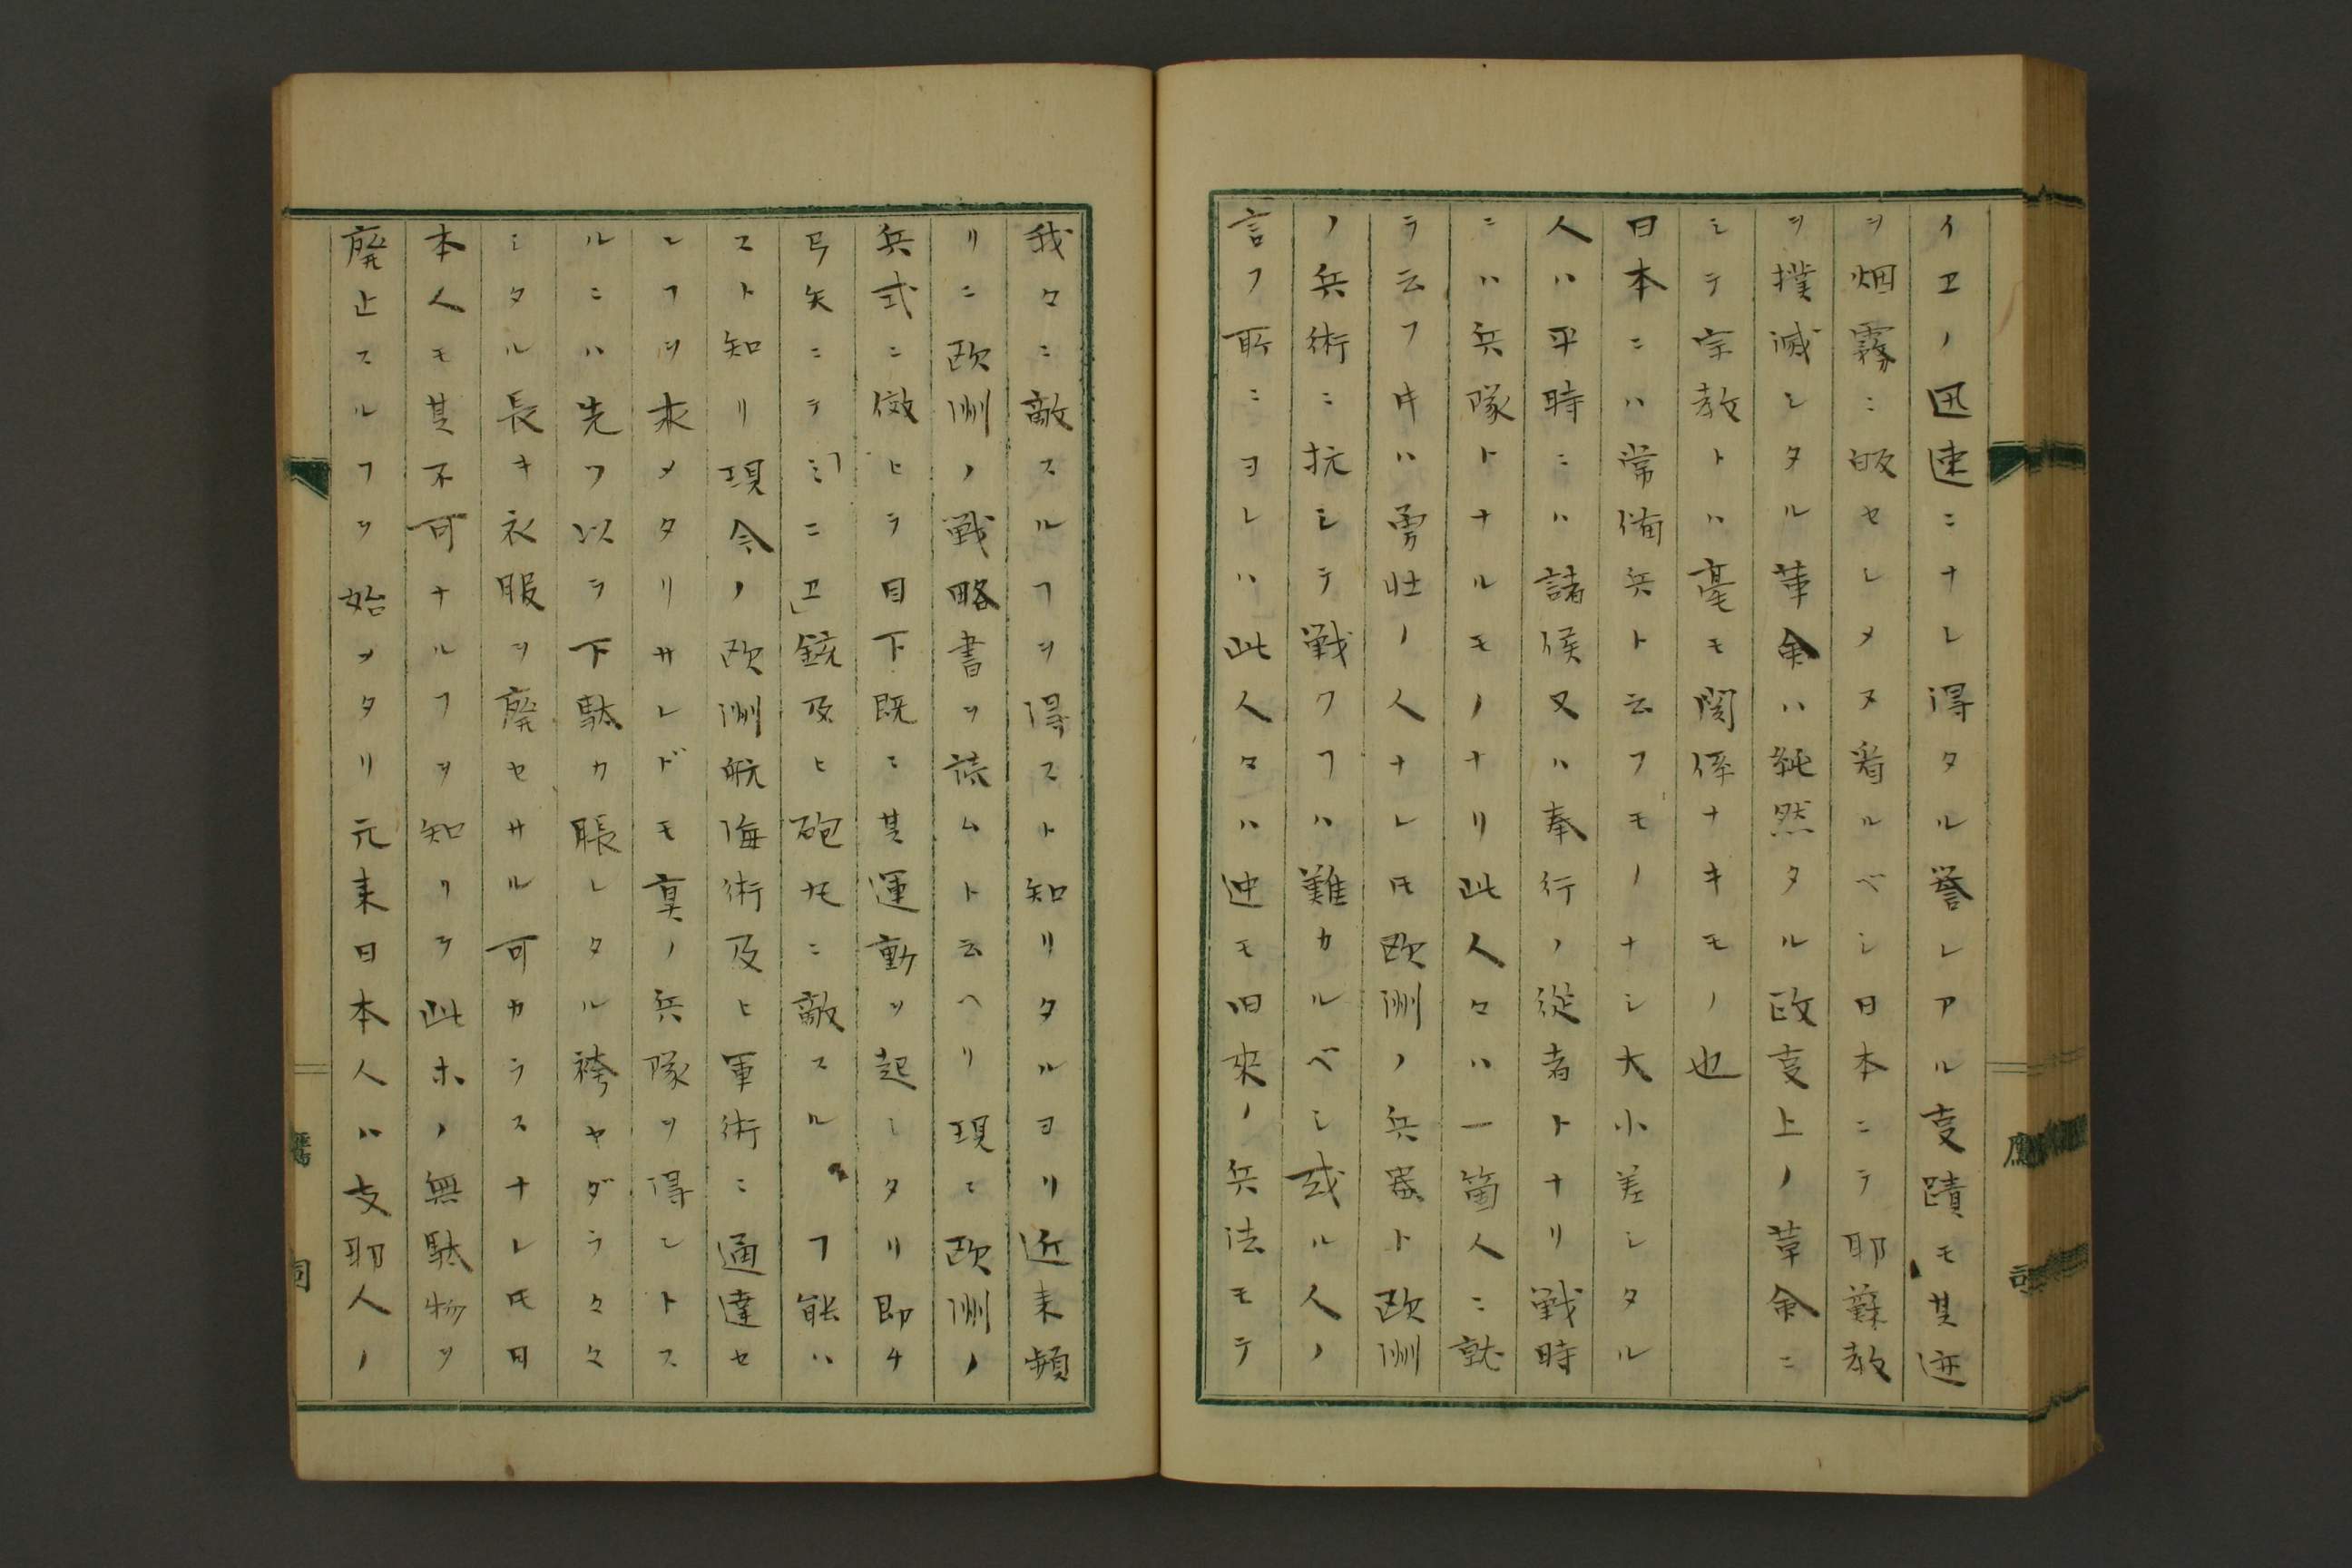 イヱノ迅速ニナレ得タル誉レアル㕝蹟モ其迹
ヲ烟霧ニ皈セシメヌ看ルベシ日本ニテ耶蘇教
ヲ撲滅シタル革命ハ純然タル政㕝上ノ革命ニ
シテ宗教トハ毫モ関係ナキモノ也
日本ニハ常備兵ト云フモノナシ大小差シタル
人ハ平時ニハ諸侯又ハ奉行ノ従者トナリ戦時
ニハ兵隊トナルモノナリ此人々ハ一箇人ニ就
テ云フ𪜈ハ勇壮ノ人ナレ𪜈欧洲ノ兵器ト欧洲
ノ兵術ニ抗シテ戦フヿハ難カルベシ或ル人ノ
言フ所ニヨレハ此人々ハ迚モ旧来ノ兵法モテ
我々ニ敵スルヿヲ得スト知リタルヨリ近来頻
リニ欧洲ノ戦略書ヲ読ムト云ヘリ現ニ欧洲ノ
兵式ニ倣ヒテ目下既ニ其運動ヲ起シタリ即チ
弓矢ニテ「ミニヱ」銃及ヒ砲𪜈ニ敵スルヿ能ハ
スト知リ現今ノ欧洲航海術及ヒ軍術ニ通達セ
ンヿヲ求メタリサレドモ真ノ兵隊ヲ得ントス
ルニハ先ツ以テ下駄カ脹レタル袴ヤダラ々々
シタル長キ衣服ヲ廃セサル可カラスナレ𪜈日
本人モ其不可ナルヿヲ知リテ此ホノ無駄物ヲ
廃止スルヿヲ始メタリ元来日本人ハ支耶人ノ